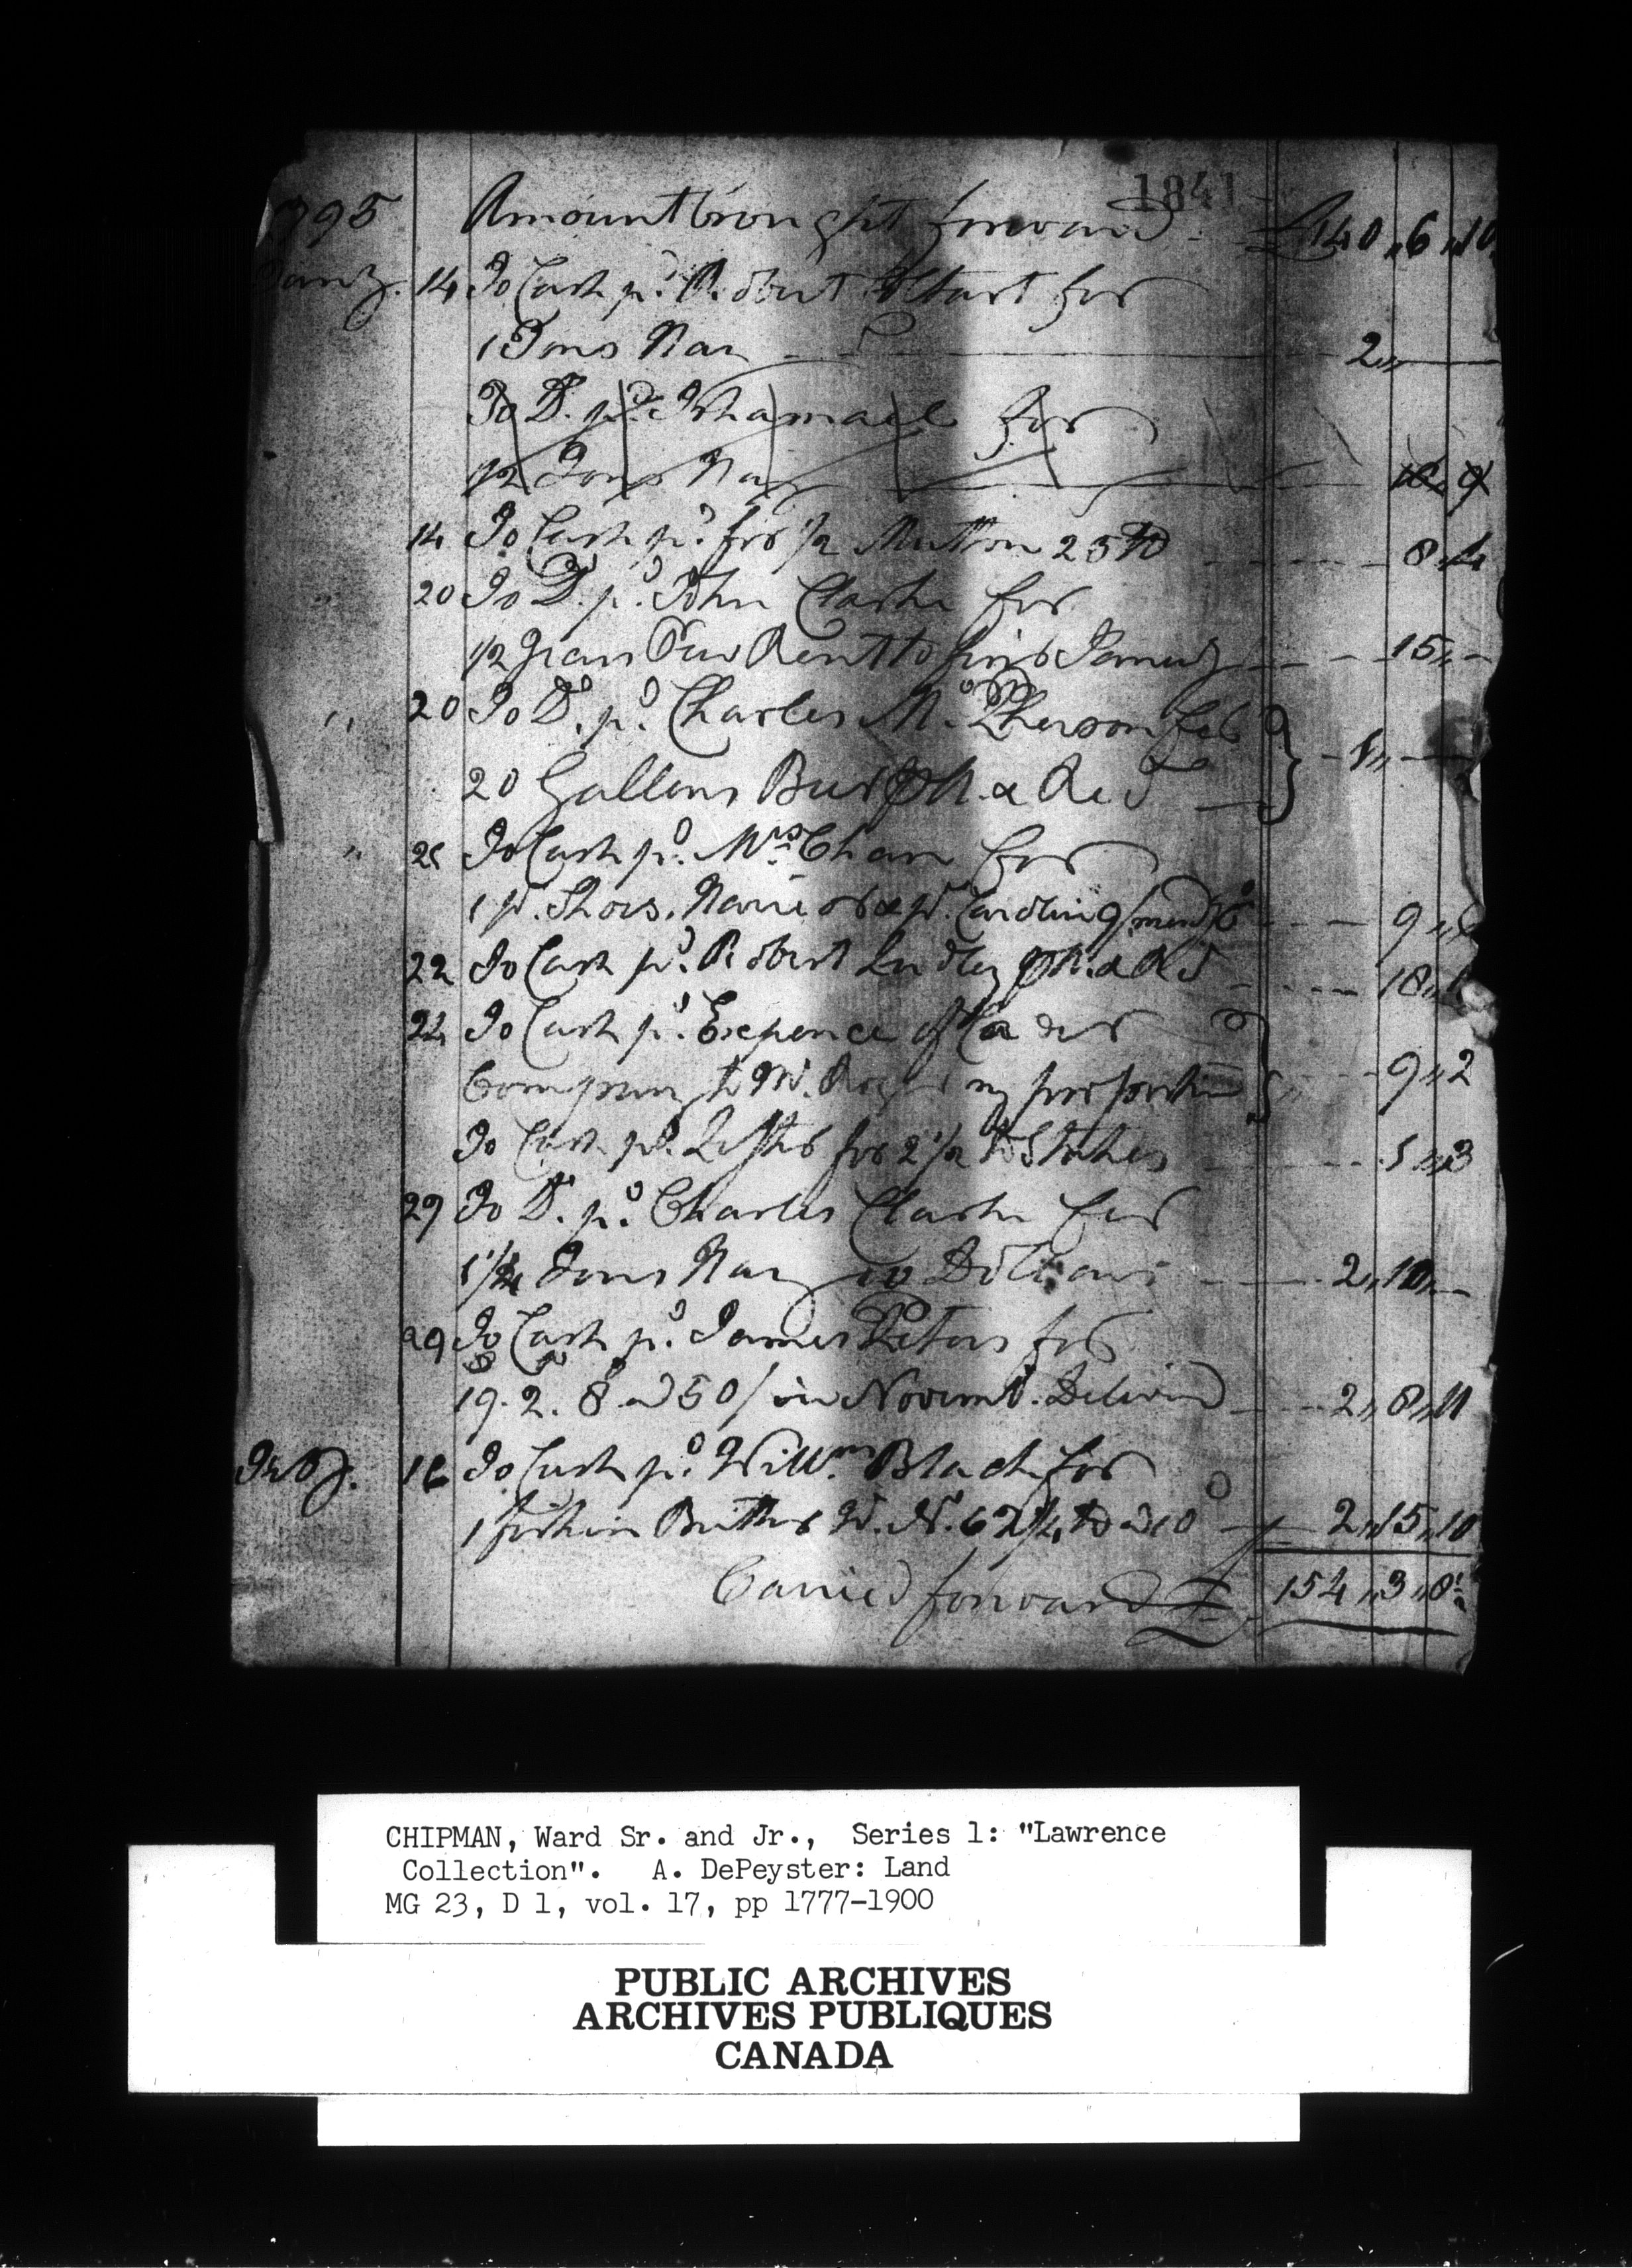 1841
1795 Amount brought forward £140 „6 „10
Janry. 14 To Cash pd. Robert Start for
1 Tons Hay 2„
To Do. pd. Ishamael for
1/2 Tons Hay
14 To Cash pd. for 1/2 Mutton 25 lb 8 4
20 To Do. pd. John Clarke for
1/2 Years Pew Rent to first January 15„
„ 20 To Do. pd. Charles McPherson for
20 Gallons Beer pr. A. & Red 1„
„ 21 To Cash pd. Mrs. Chase for
1 pr. Shoes 9„
22 To Cash pd. Robert Ludley pr. A. & Red 18„
24 To Cash pd. Expence of
Company to my proportion 9„2
To Cash pd. Lester for 2 1/2 lb 5„3
29 To Do. pd. Charles Clarke for
1 1/4 Tons Hay 2„10„
29 To Cash pd. James Peters for
19. 2. 8 a 50/ in Novembr. Deliverd 2„8„11
Feby. 16 To Cash pd. Willm. Black for
1 firkin Butter W. N. 62 1/4 lb a 10d 2„15„10
Carried forward £ 154„3„8 1/2
CHIPMAN, Ward Sr. and Jr., Series 1: "Lawrence
Collection". A. DePeyster: Land
MG 23, D 1, vol. 17, pp 1777-1900
PUBLIC ARCHIVES
ARCHIVES PUBLIQUES
CANADA